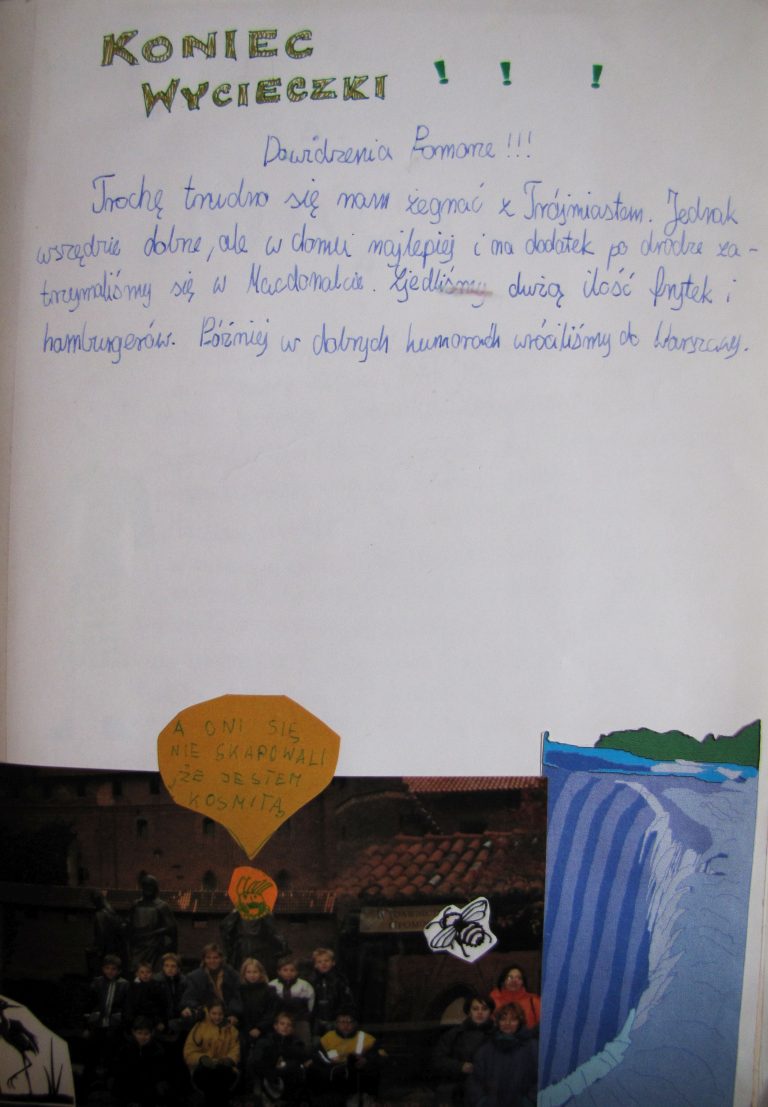 KONIEC
WYCIECZKI ! ! !
Dowidzenia Pomorze !!!
Trochę trudno się nam żegnać z Trójmiastem. Jednak
wszędzie dobrze, ale w domu najlepiej i na dodatek po drodze za-
trzymaliśmy się w Macdonalcie. Zjedliśmy dużą ilość frytek i
hamburgerów. Później w dobrych humorach wróciliśmy do Warszawy.
A ONI SIĘ
NIE SKAPOWALI
ŻE JESTEM
KOSMITĄ